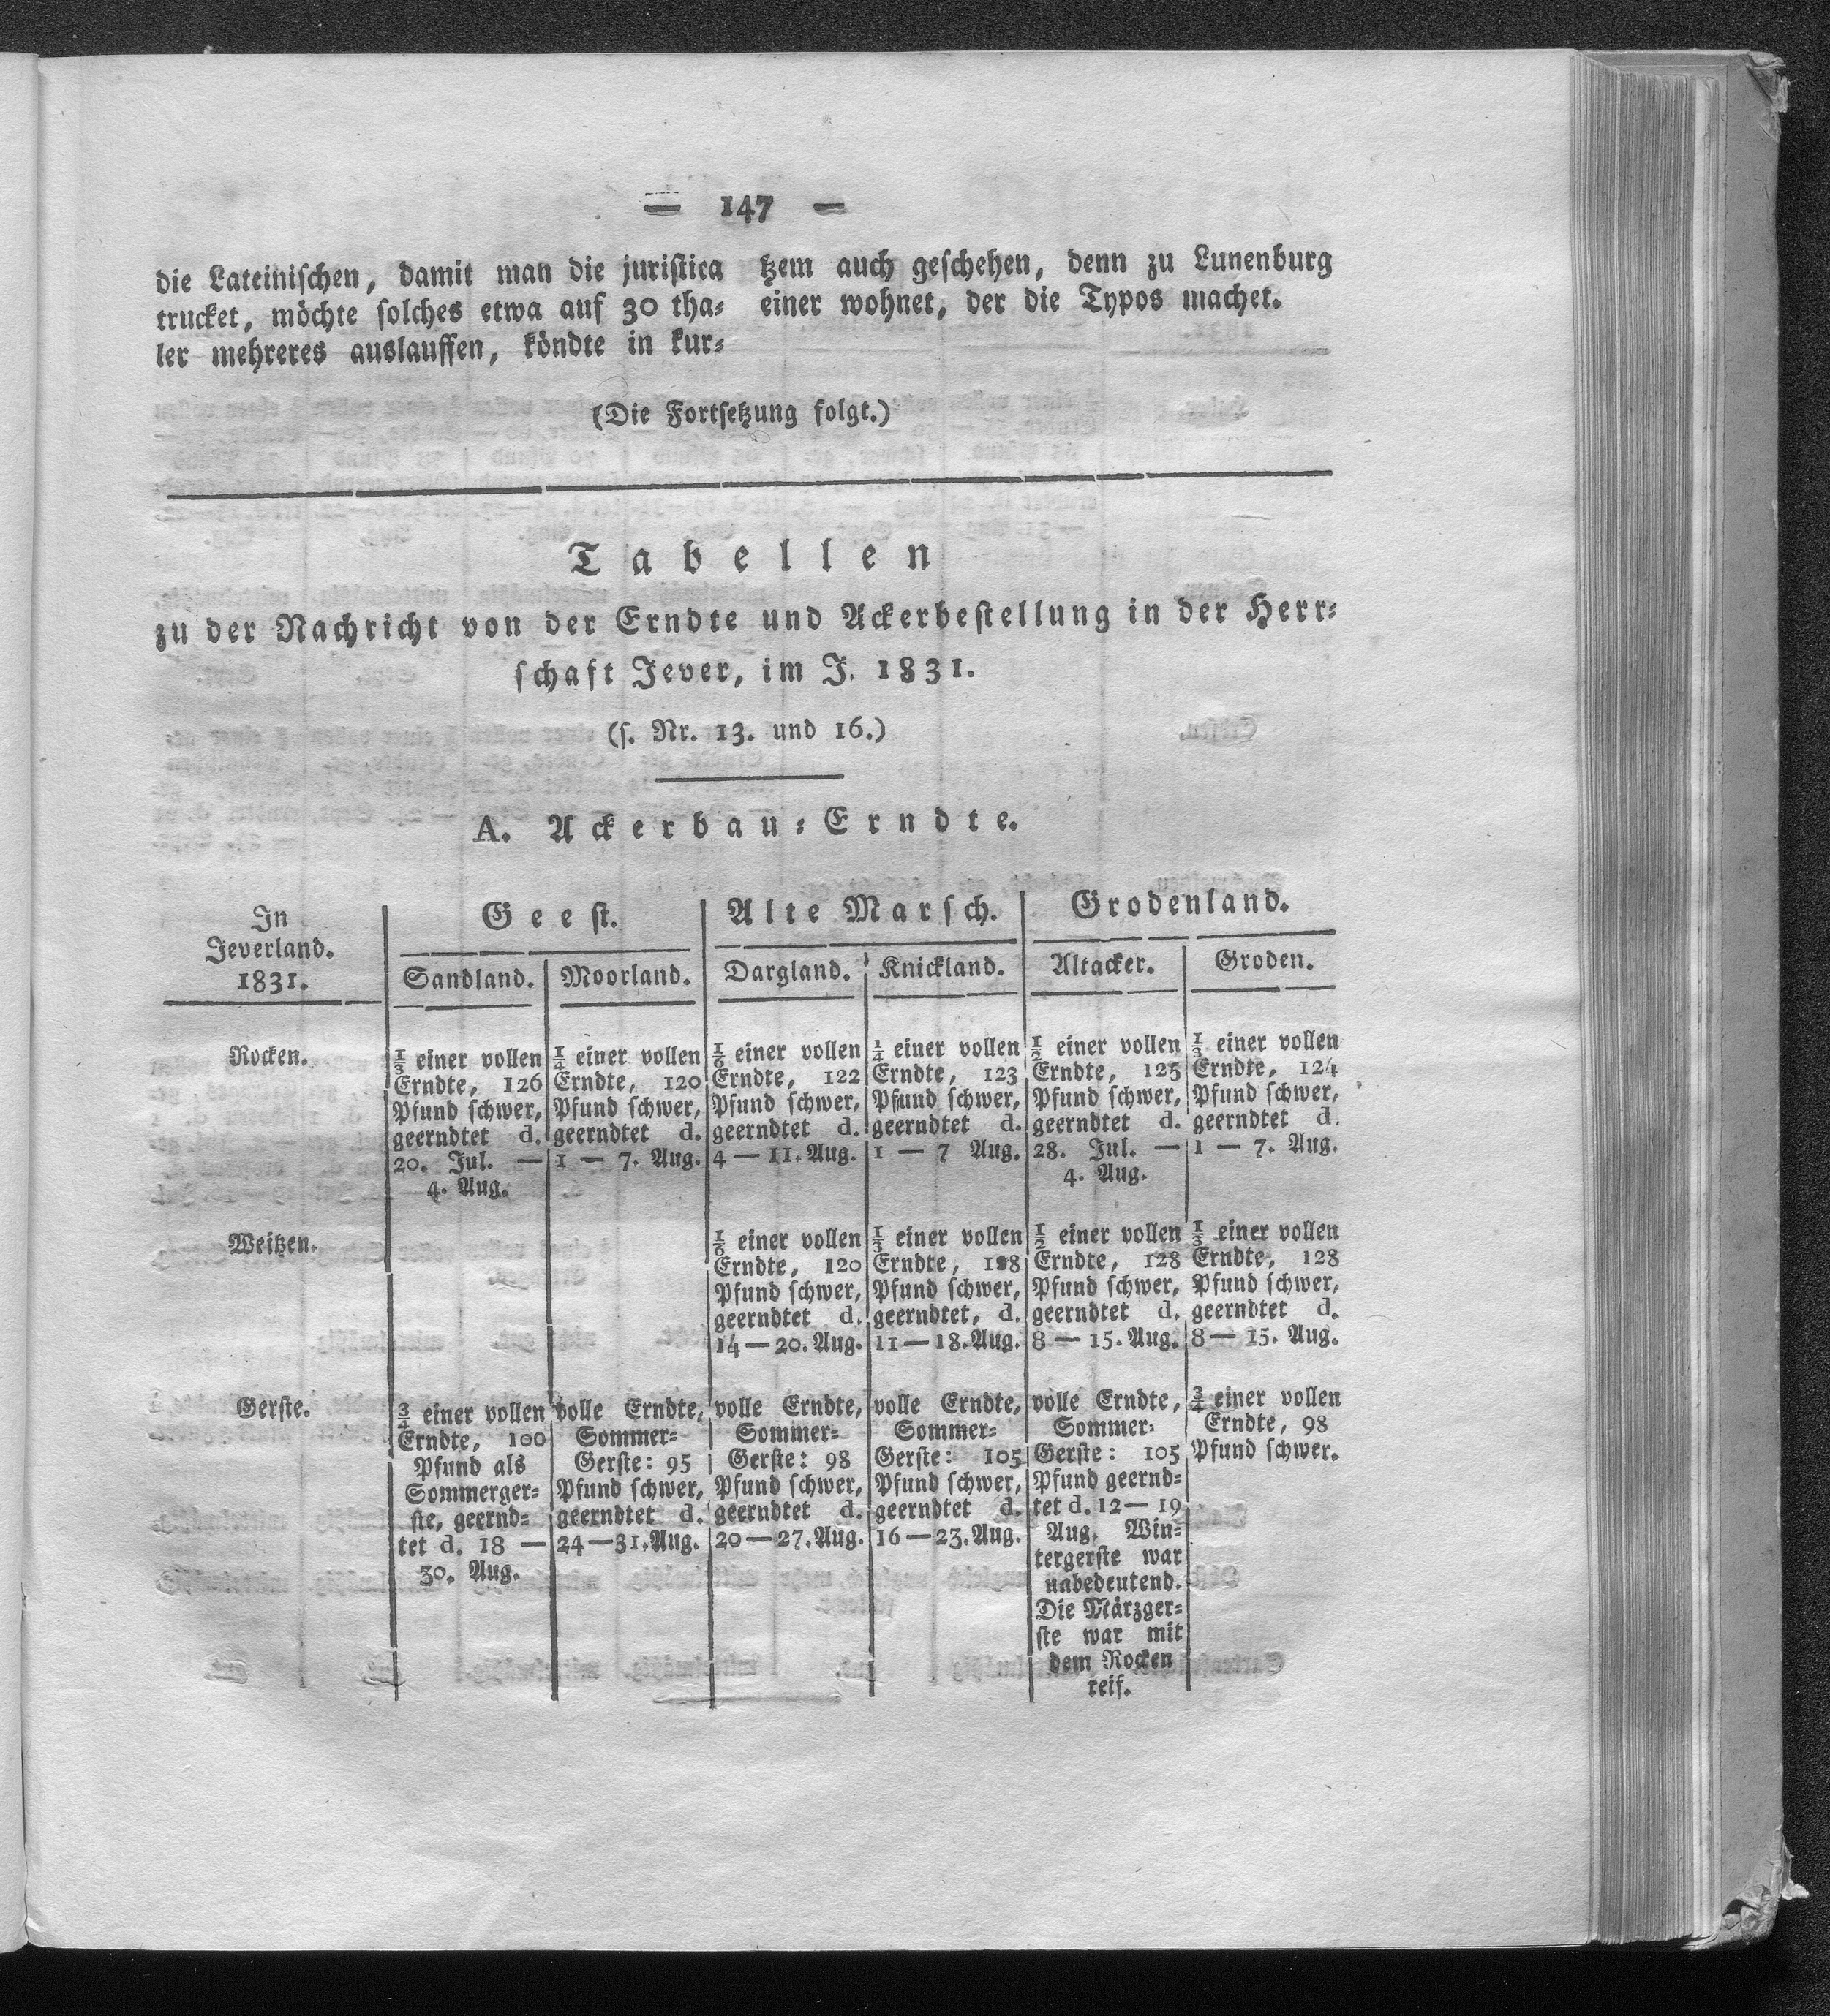 — 147 —
die Lateinischen, damit man die juristica
trucket, möchte solches etwa auf 30 tha-
ler mehreres auslauffen, köndte in kur-
tzem auch geschehen, denn zu Lunenburg
einer wohnet, der die Typos machet.
(Die Fortsetzung folgt.)
Tabellen
zu der Nachricht von der Erndte und Ackerbestellung in der Herr-
schaft Jever, im J. 1831.
(s. Nr. 13. und 16.)
A. Ackerbau-Erndte.
In
Jeverland.
1831.
Geest.
Alte Marsch.
Grodenland.
Sandland.
Moorland.
Dargland.
Knickland.
Altacker.
Groden.
Rocken.
1/3 einer vollen
Erndte, 126
Pfund schwer,
geerndtet d.
20. Jul. —
4. Aug.
1/4 einer vollen
Erndte, 120
Pfund schwer,
geerndtet d.
1 — 7. Aug.
1/6 einer vollen
Erndte, 122
Pfund schwer,
geerndtet d.
4 — 11. Aug.
1/4 einer vollen
Erndte, 123
Pfund schwer,
geerndtet d.
1 — 7 Aug.
1/2 einer vollen
Erndte, 125
Pfund schwer,
geerndtet d.
28. Jul. —
4. Aug.
1/3 einer vollen
Erndte, 124
Pfund schwer,
geerndtet d.
1 — 7. Aug.
Weitzen.
1/6 einer vollen
Erndte, 120
Pfund schwer,
geerndtet d.
14 — 20. Aug.
1/3 einer vollen
Erndte,
Pfund schwer,
geerndtet, d.
11 — 18. Aug.
1/2 einer vollen
Erndte, 128
Pfund schwer,
geerndtet d.
8 — 15. Aug.
1/3 einer vollen
Erndte, 128
Pfund schwer,
geerndtet d.
8 — 15. Aug.
Gerste.
3/4 einer vollen
Erndte, 100
Pfund als
Sommerger-
ste, geernd-
tet d. 18 —
30. Aug.
volle Erndte,
Sommer-
Gerste: 95
Pfund schwer,
geerndtet d.
24 — 31. Aug.
volle Erndte,
Sommer-
Gerste: 98
Pfund schwer,
geerndtet d.
20 — 27. Aug.
volle Erndte,
Sommer-
Gerste: 105
Pfund schwer,
geerndtet d.
16 — 23. Aug.
volle Erndte,
Sommer-
Gerste: 105
Pfund geernd-
tet d. 12 — 19
Aug. Win-
tergerste war
unbedeutend.
Die Märzger-
ste war mit
dem Rocken
reif.
3/4 einer vollen
Erndte, 98
Pfund schwer.